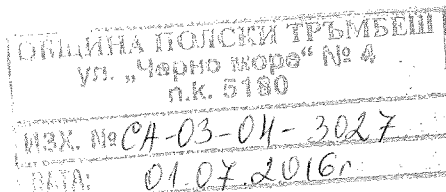 ОБЩИНА ПОЛСКИ ТРЪМБЕШ
ул. „Черно море“ № 4
п.к. 5180
ИЗХ. № СА-03-04-3027
ДАТА: 01.07.2016г